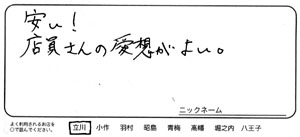 安い！
店員さんの愛想がよい。
ニックネーム
よく利用されるお店を
○で囲んでください。
立川 小作 羽村 昭島 青梅 高幡 堀之内 八王子